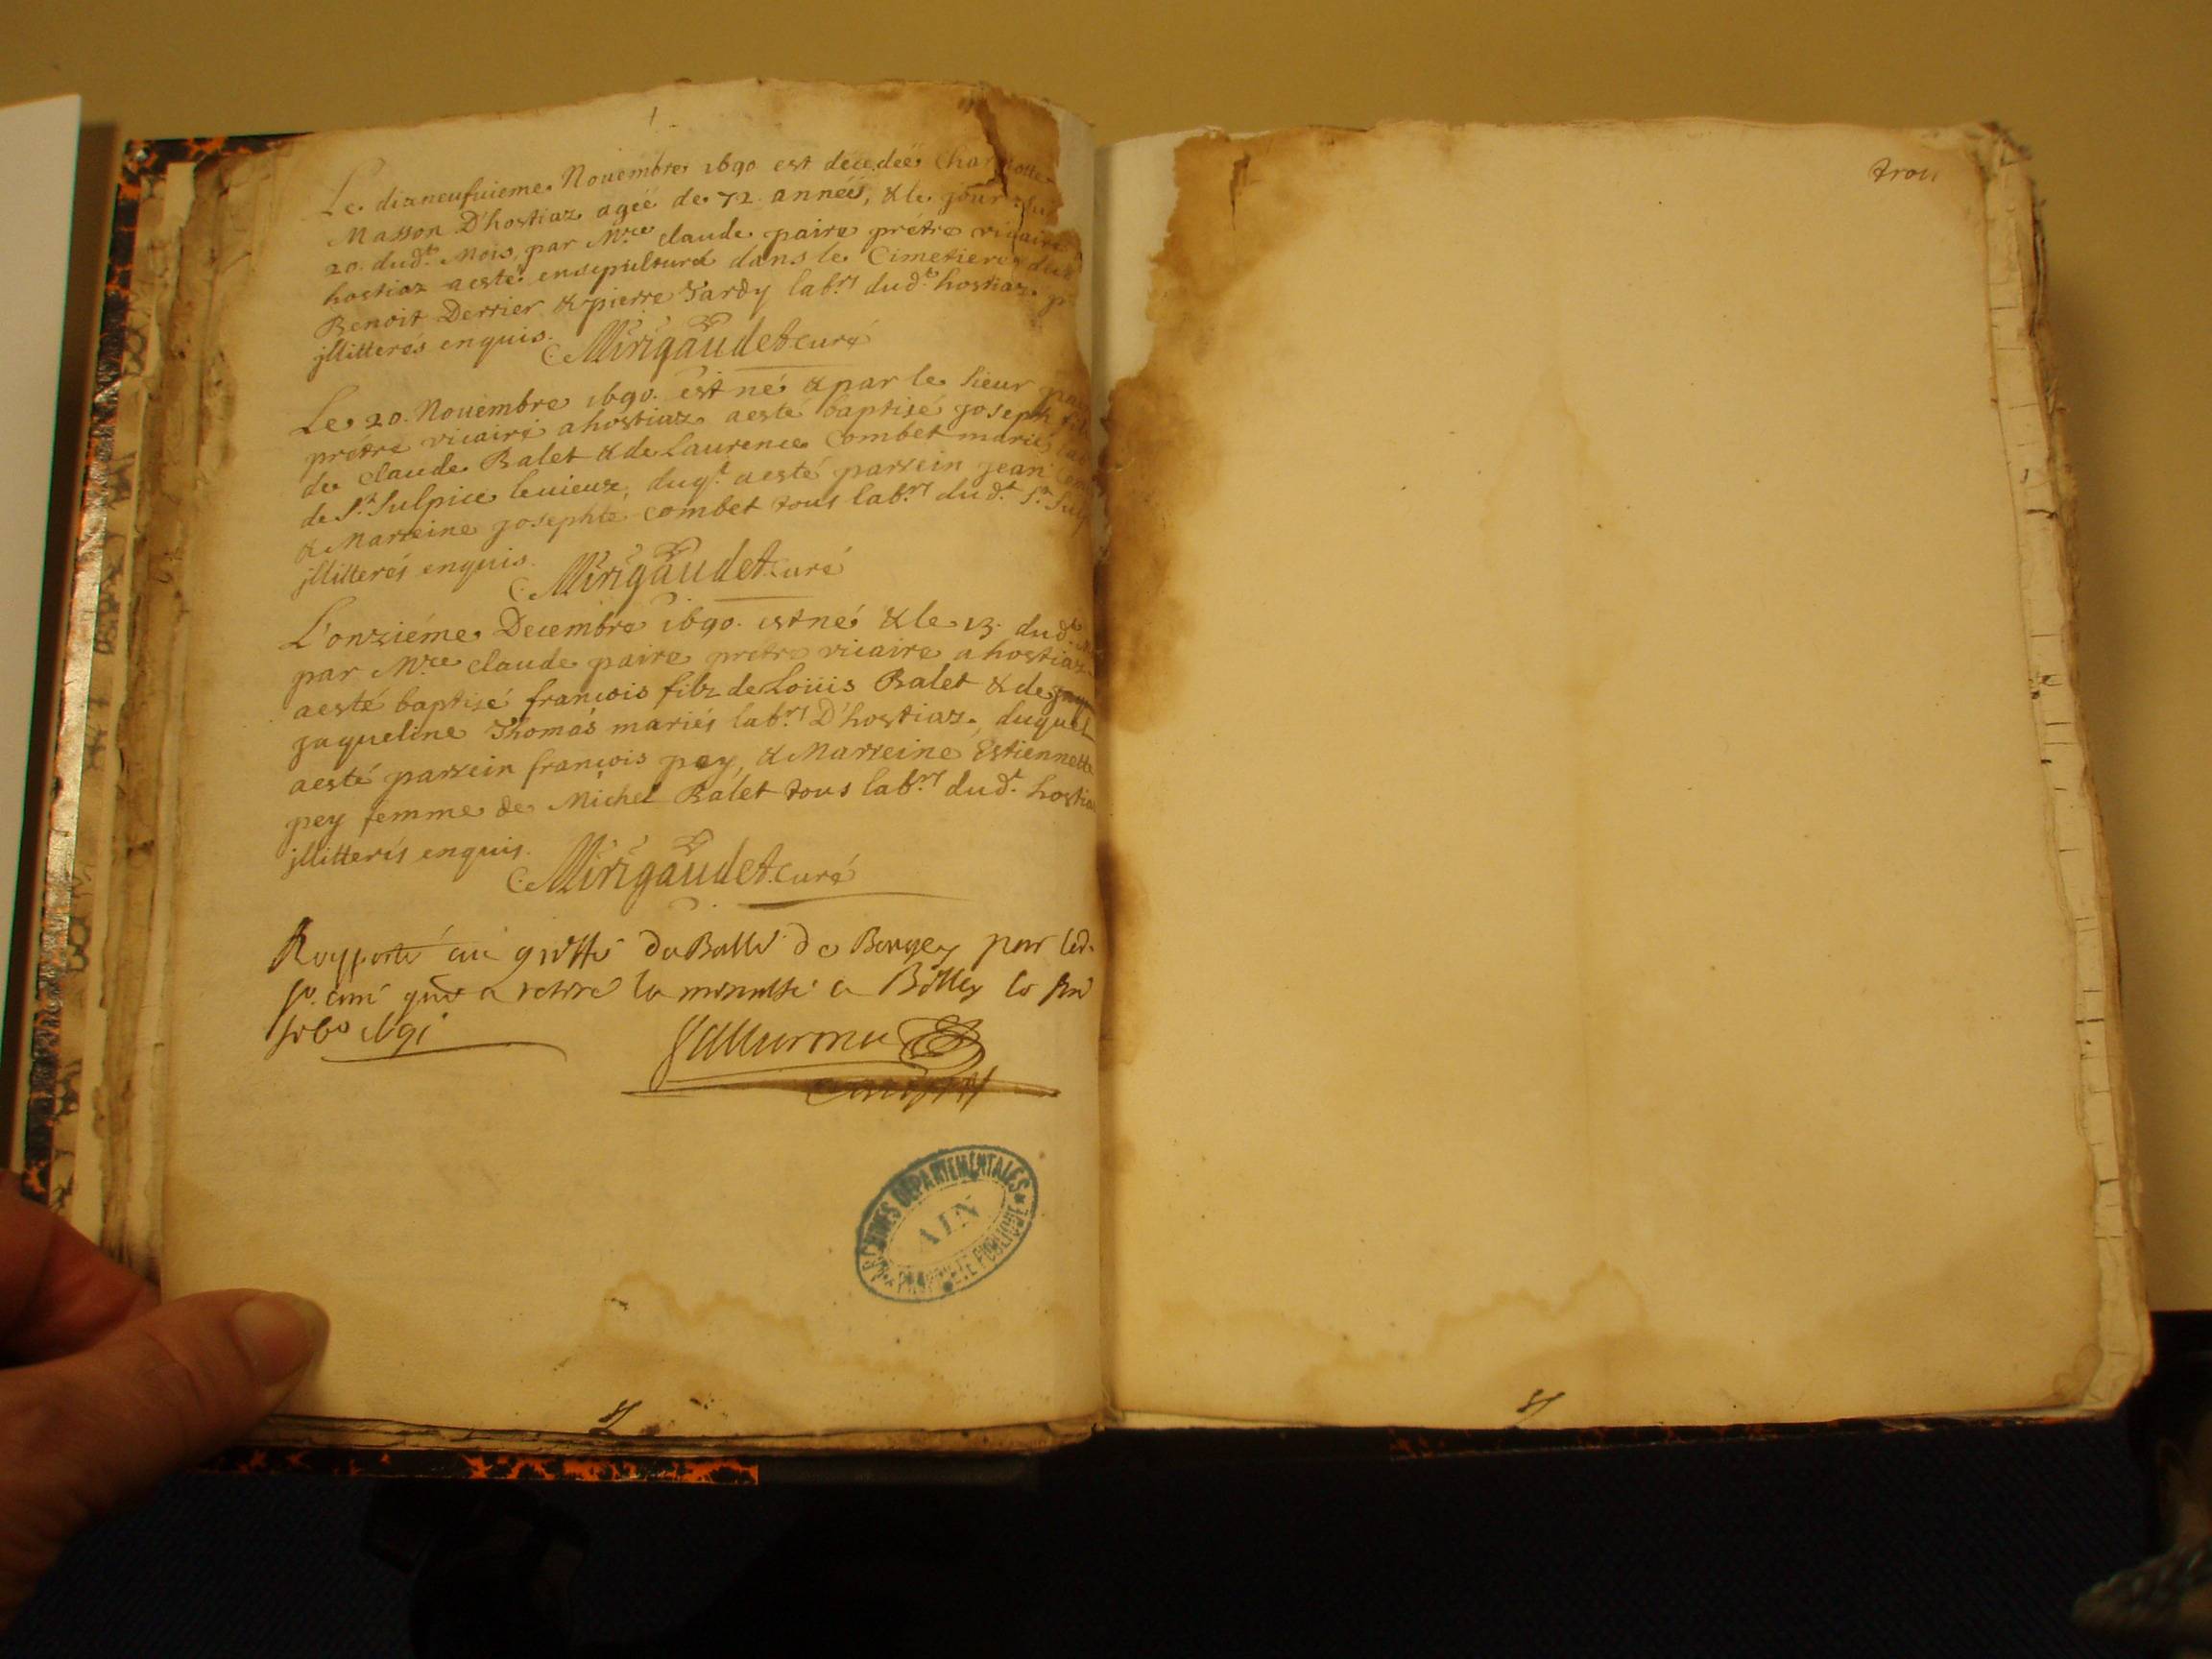 Le dixneufuieme Nouembre 1690 est decedeé Charlotte
Masson D'hostiaz ageé de 72 années, & le jour
20. dud.t Mois, par M.re claude paire prétre vicaire
hostiaz aesté ensepulturé dans le Cimetiere
Benoit Derrier & pierre Tardy lab.rs dud.t hostiaz
jllitterés enquis.
Mirigaudet curé
Le 20. Nouembre 1690. est né & par le sieur
prétre vicaire a hostiaz aesté baptisé joseph
de claude Balet & de Laurence Combet mariés
de S.t Sulpice levieux, duq.t aesté parrein jean
& Marreine josephte combet tous lab.rs dud.t S.t
jllitterés enquis.
Mirigaudet curé
L'onziéme Decembre 1690. est né & le 13. dud.t
par M.re claude paire pretre vicaire a hostiaz
aesté baptisé francois filz de Loüis Balet & de
jaqueline Thomas mariés lab.rs D'hostiaz, duquel
aesté parrein francois pey, & Marreine Estiennette
pey femme de Michel Balet tous lab.rs dud.t hostiaz
jllitterés enquis.
Mirigaudet curé
Rapporté au greffe du Balli. de Bougey par led.
sr. curé qui a retiré la minutte a Belley le
1691
trois
ARCHIVES DÉPARTEMENTALES
AIN
PROPRIÉTÉ PUBLIQUE